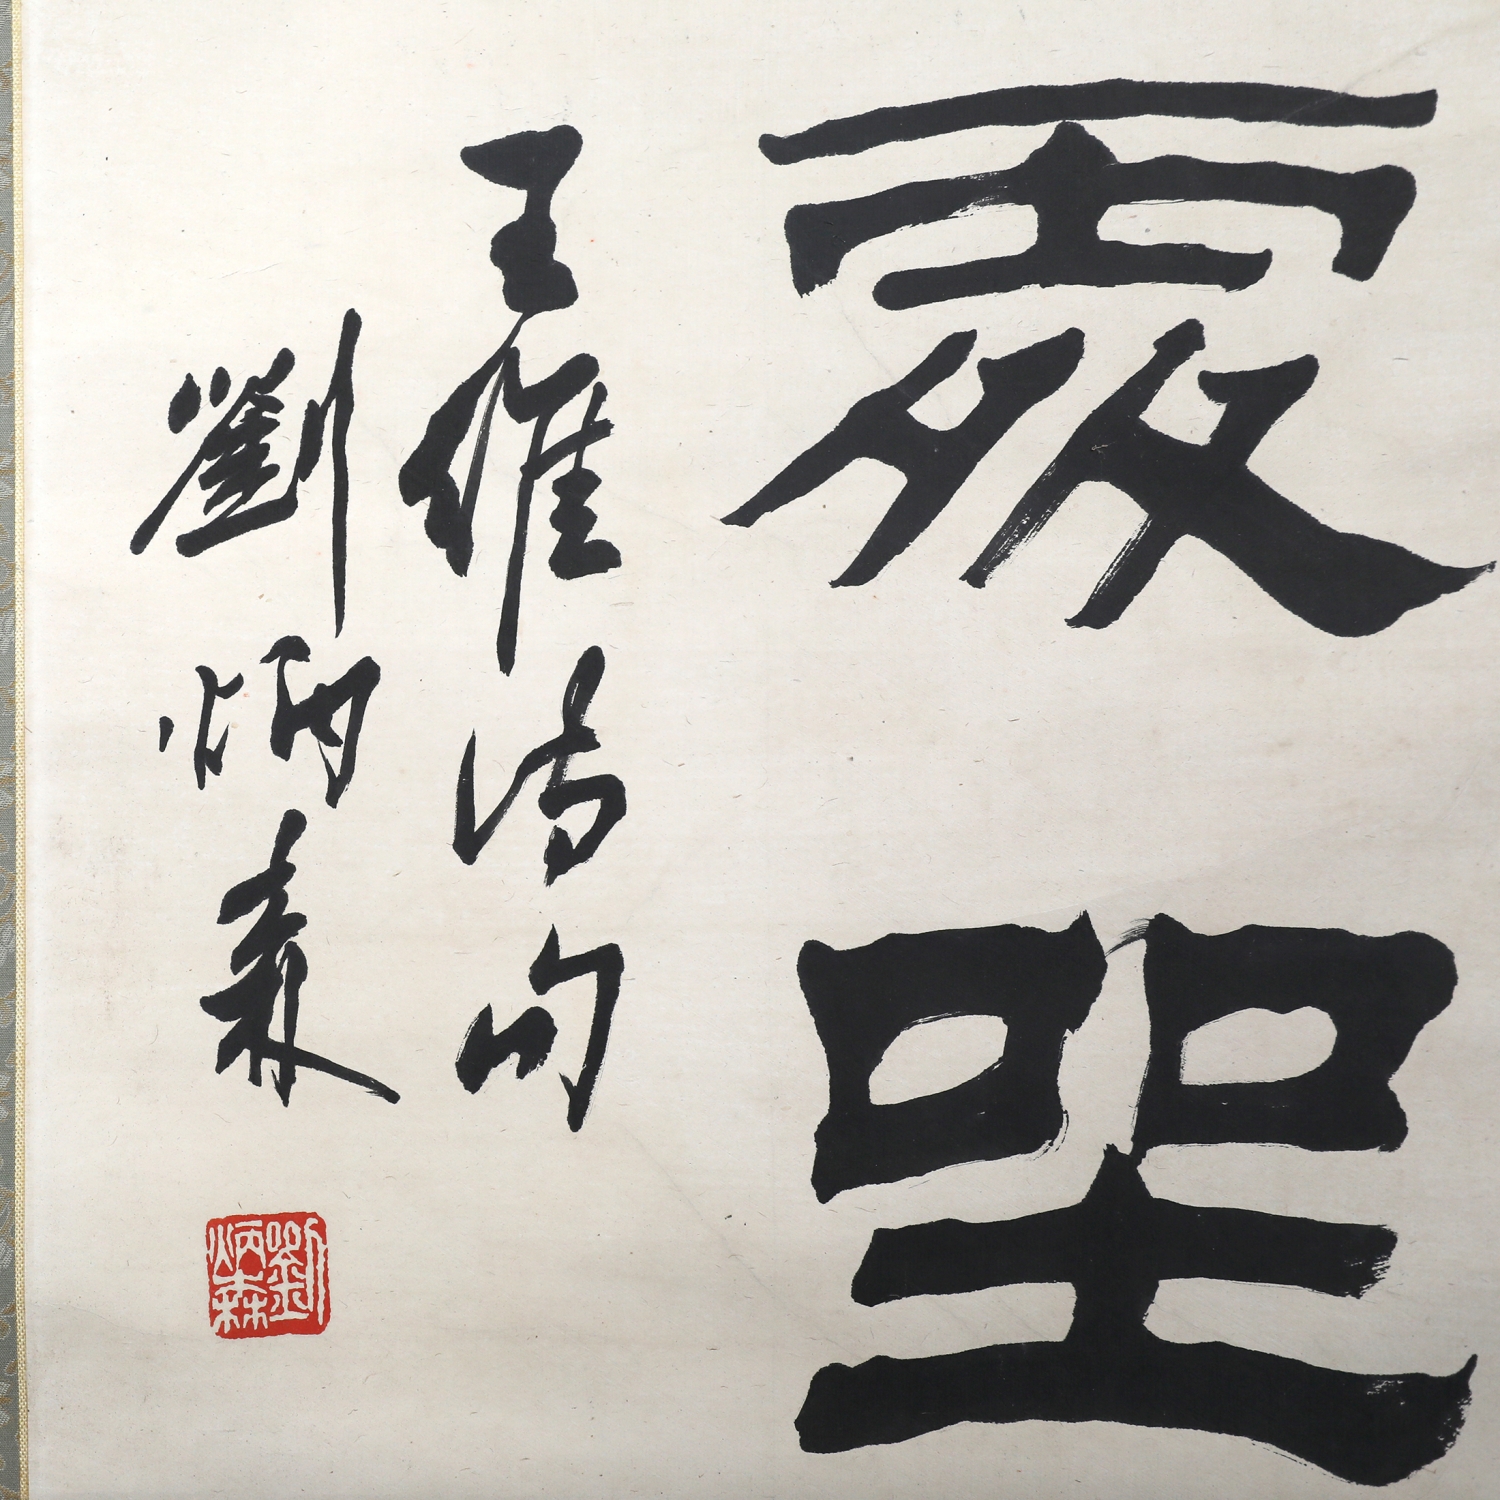 坐
王維詩句
劉炳森
劉炳森